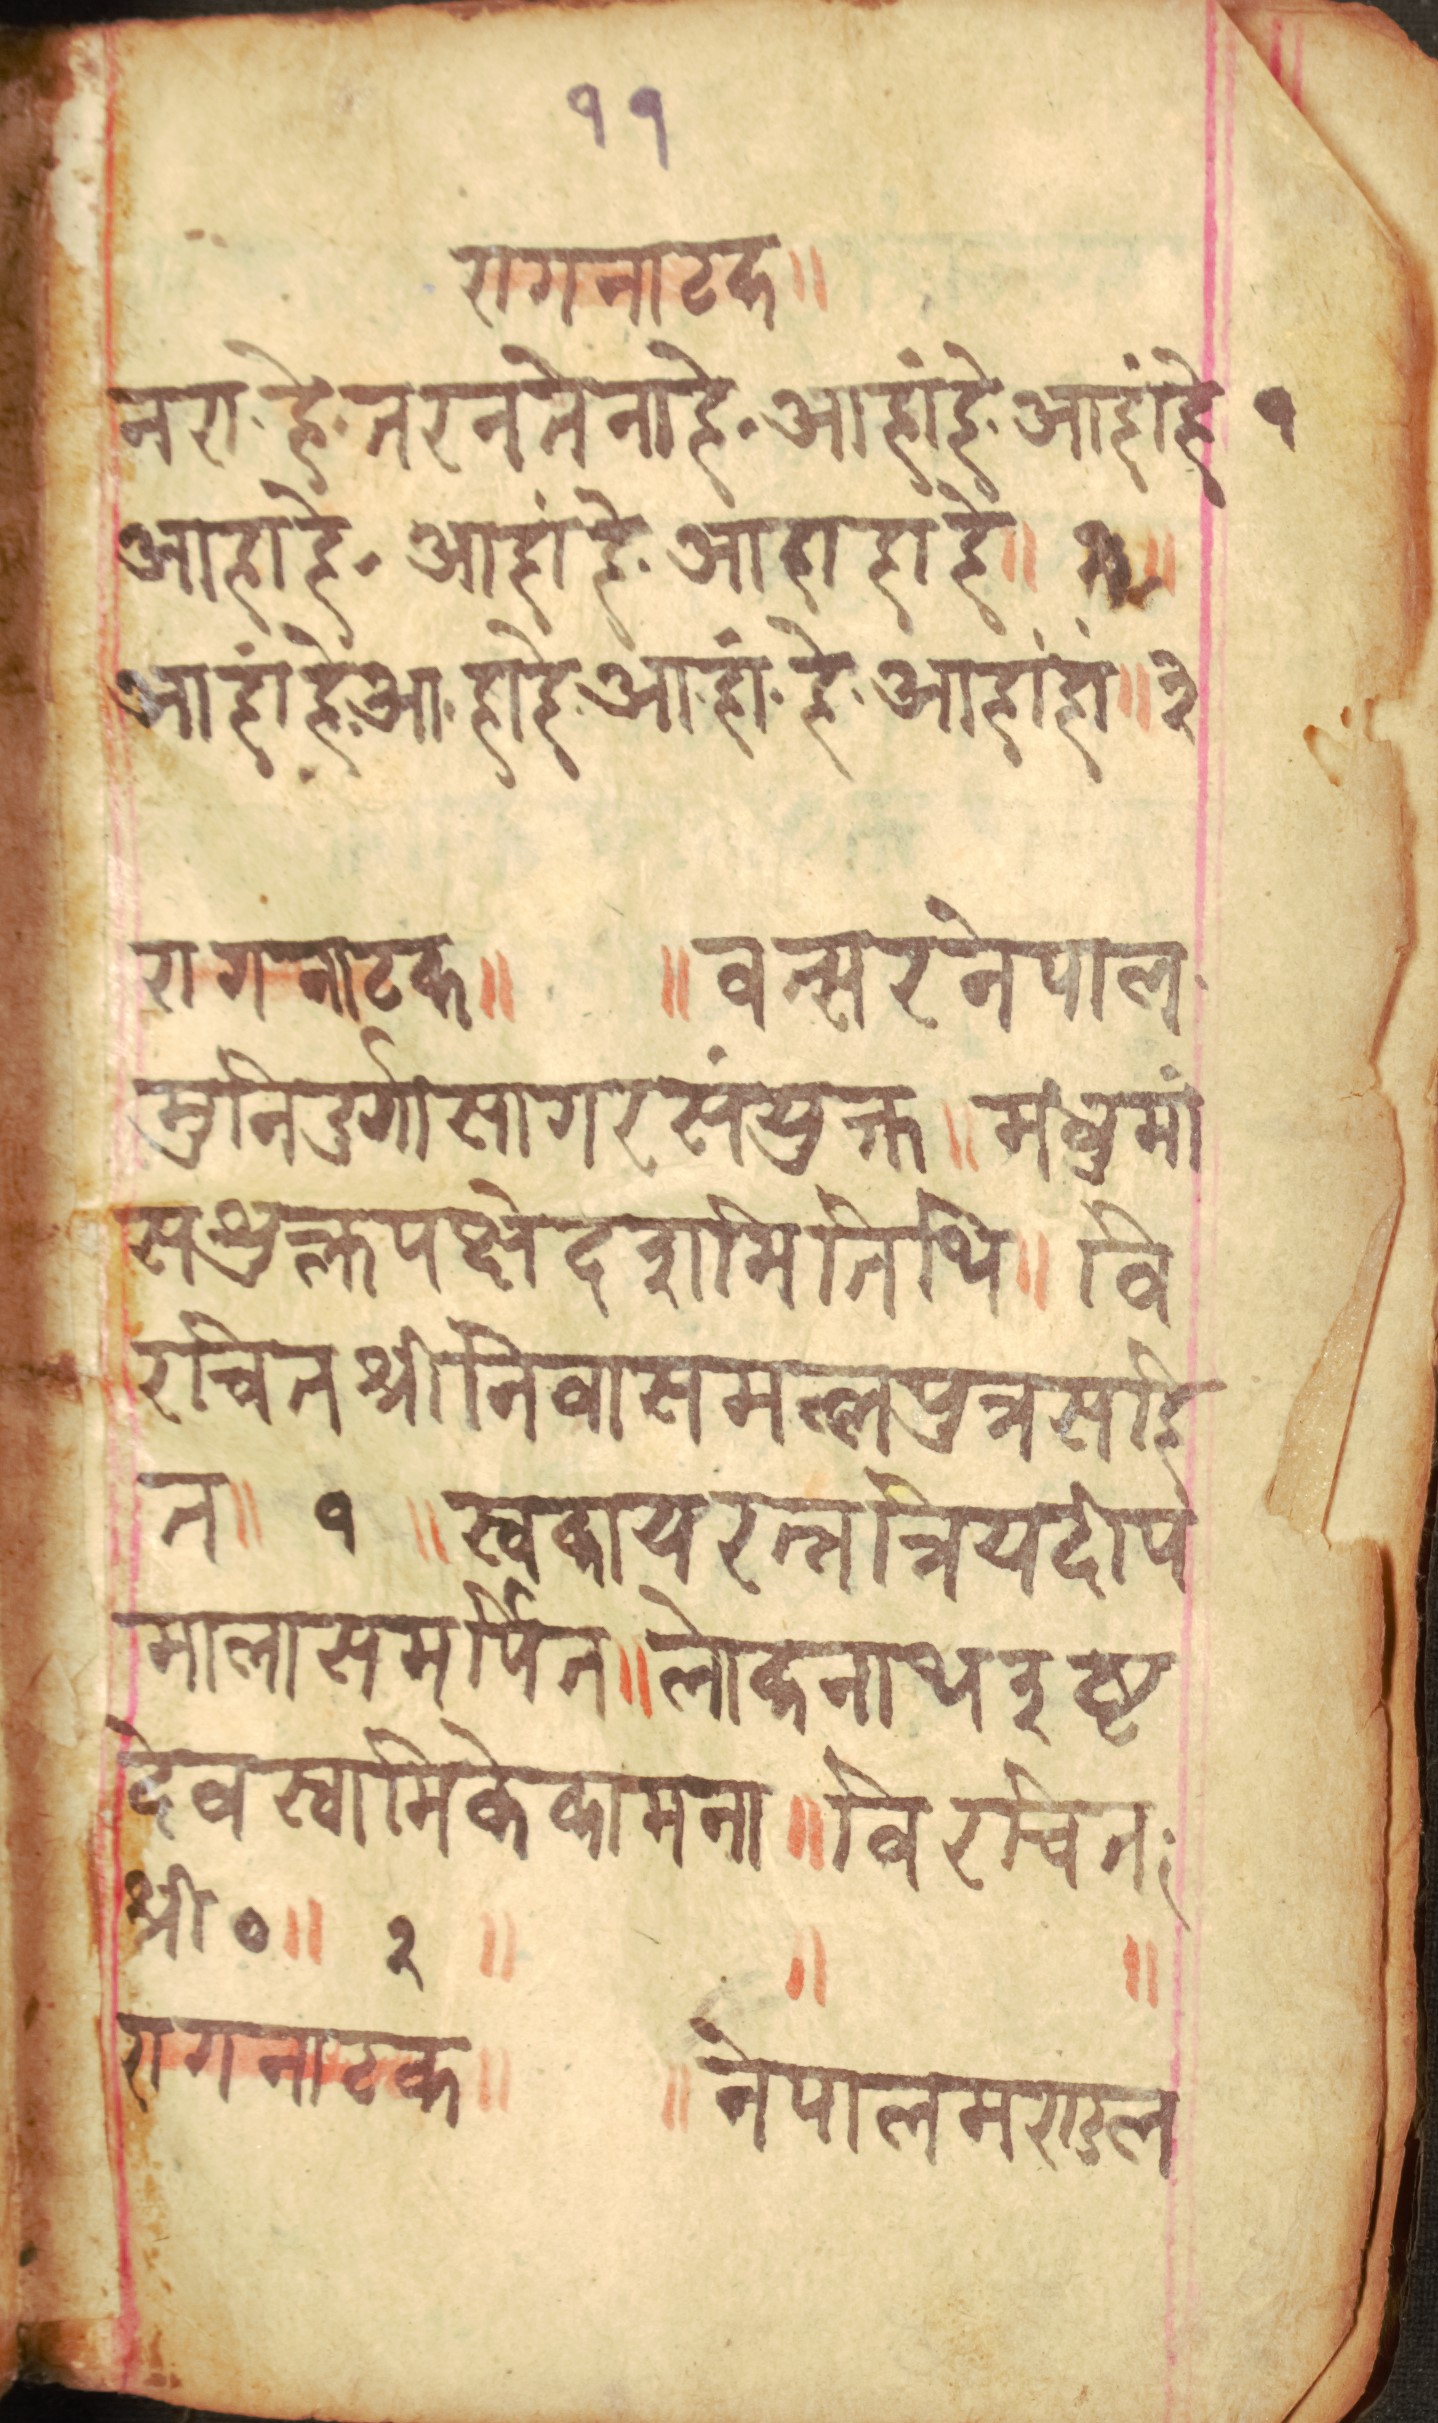 ११
रागनाटक॥
नरा·हे·तरनतेनाहे·आहांहे·आहांहे १
आहाहे· आहांहे·आहाहांहे॥ ॥
आहांहे·आ·हाहे·आहां·हे·आहांहां॥ ३
रागनाटक॥ ॥वत्सरनेपाल·
मुनिदुर्गासागरसंयुक्त॥मधुमां
सशुक्लपक्षेदशमितिथि॥वि
रचितश्रीनिवासमल्लपुत्रसहि
त॥ १ ॥स्वकायरत्नत्रियदीप
मालासमर्पित॥लोकनाथइष्ट
देवस्वामिकेकामना॥विरचितः
श्री०॥ २ ॥ ॥ ॥
रागनाटक॥ ॥नेपालमण्डल